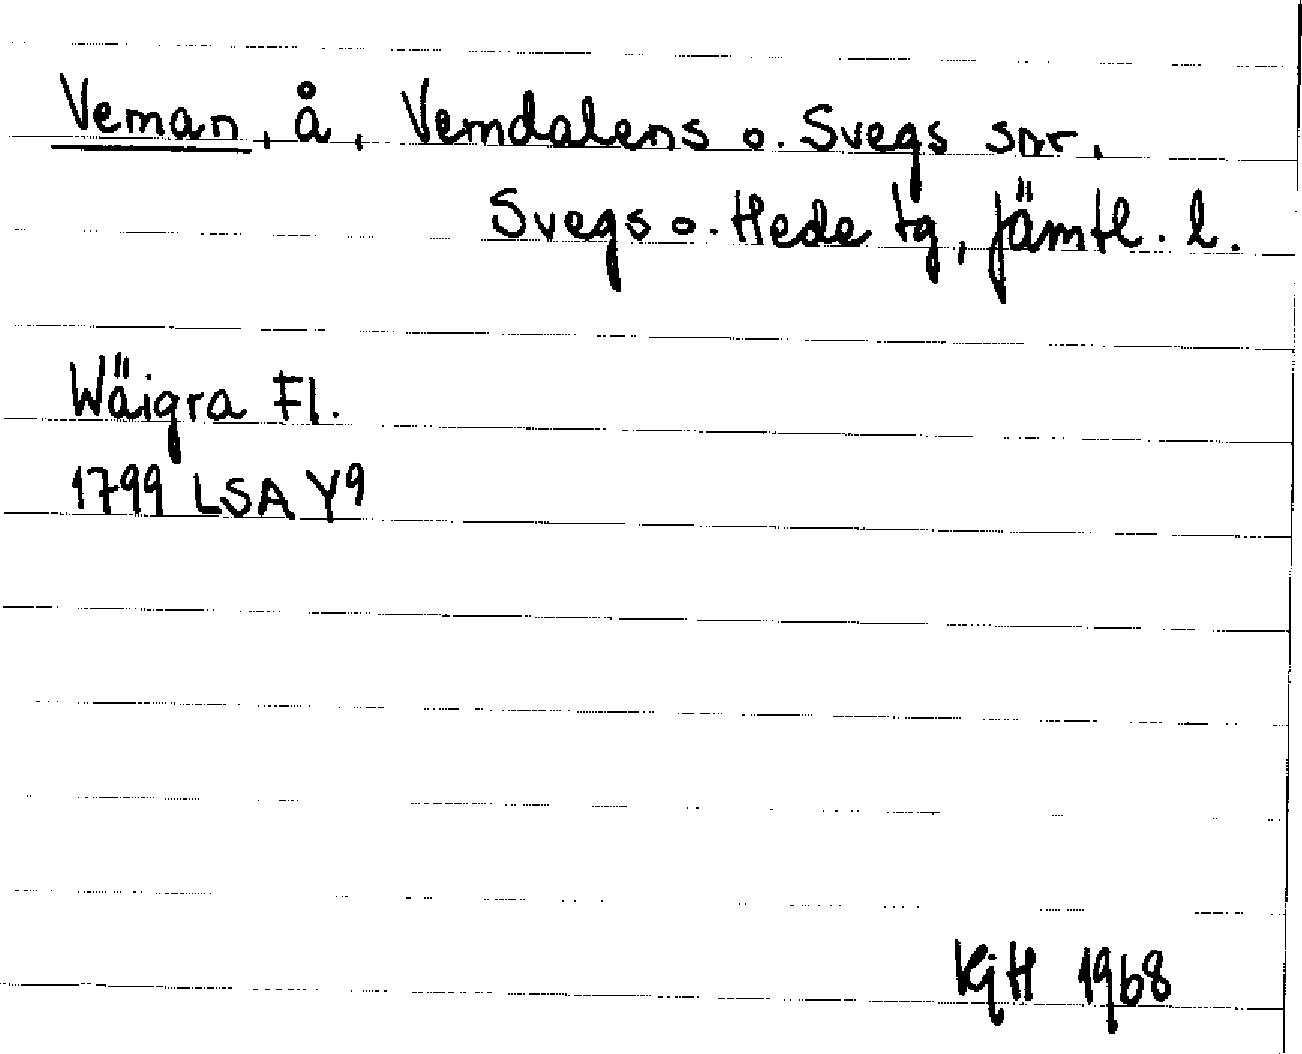 Veman, å, Vemdalens o. Svegs snr.
Svegs o. Hede tg, Jämtl. l.
Wäigra Fl.
1799 LSA Y9
KjH 1968